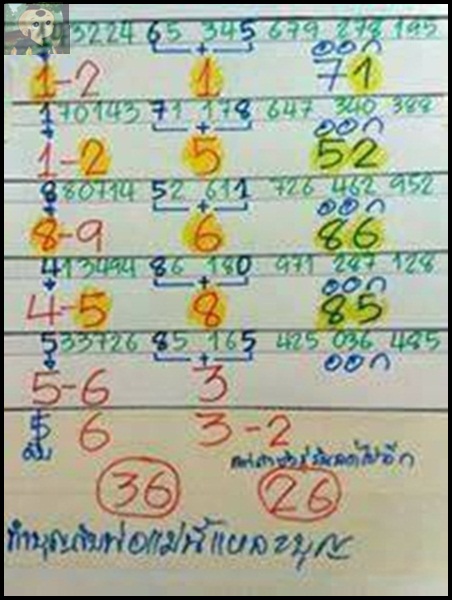 143224 65 345 679 278 195
+ ออก
1-2 1 71
170143 71 178 647 340 388
+ ออก
1-2 5 52
880714 52 611 726 462 952
+ ออก
8-9 6 86
413494 86 180 971 287 128
+ ออก
4-5 8 85
533726 85 165 425 036 485
+ ออก
5-6 3
5 6 3-2
ดับ
36 26
ทำบุญกับพ่อแม่นี้แหละบุญ